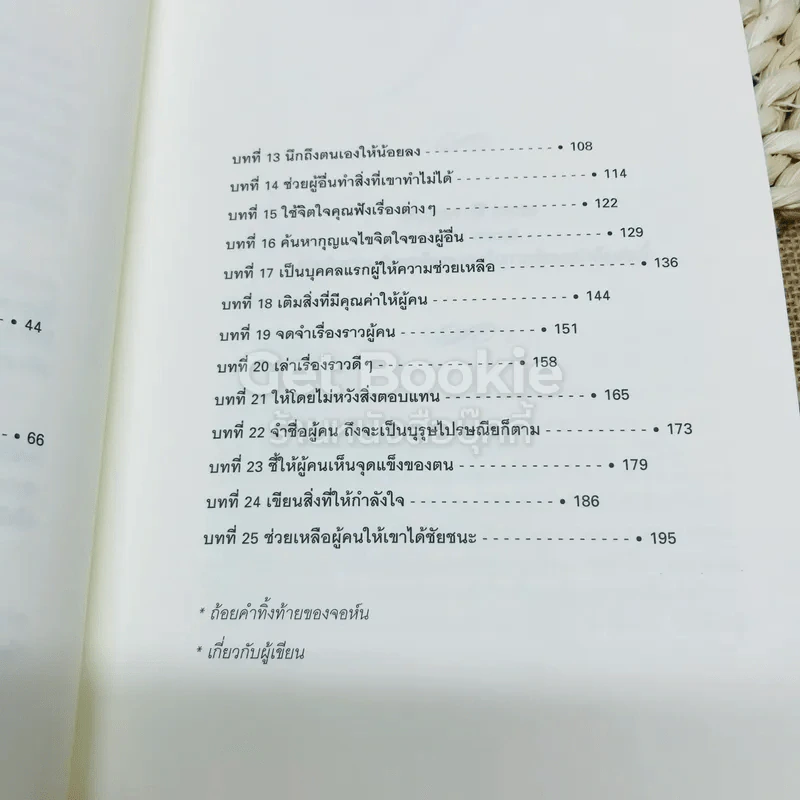 44
66
บทที่ 13 นึกถึงตนเองให้น้อยลง --------------- • 108
บทที่ 14 ช่วยผู้อื่นทำสิ่งที่เขาทำไม่ได้ --------------- • 114
บทที่ 15 ใช้จิตใจคุณฟังเรื่องต่างๆ --------------- • 122
บทที่ 16 ค้นหากุญแจไขจิตใจของผู้อื่น --------------- • 129
บทที่ 17 เป็นบุคคลแรกผู้ให้ความช่วยเหลือ --------------- • 136
บทที่ 18 เติมสิ่งที่มีคุณค่าให้ผู้คน --------------- • 144
บทที่ 19 จดจำเรื่องราวผู้คน --------------- • 151
บทที่ 20 เล่าเรื่องราวดีๆ --------------- • 158
Get Bookie
บทที่ 21 ให้โดยไม่หวังสิ่งตอบแทน --------------- • 165
ร้านหนังสือบุ๊คกี้
บทที่ 22 จำชื่อผู้คน ถึงจะเป็นบุรุษไปรษณีย์ก็ตาม --------------- • 173
บทที่ 23 ชี้ให้ผู้คนเห็นจุดแข็งของตน --------------- • 179
บทที่ 24 เขียนสิ่งที่ให้กำลังใจ --------------- • 186
บทที่ 25 ช่วยเหลือผู้คนให้เขาได้ชัยชนะ --------------- • 195
* ถ้อยคำทิ้งท้ายของจอห์น
* เกี่ยวกับผู้เขียน